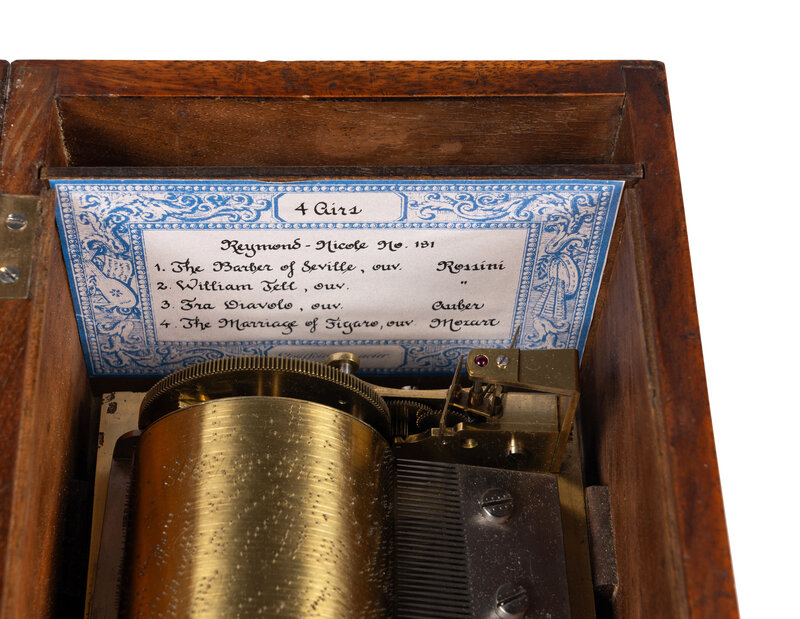 4 Airs
Reymond-Nicole No. 191
1. The Barber of Seville, ouv. Rossini
2. William Tell, ouv. "
3. Fra Diavolo, ouv. Auber
4. The Marriage of Figaro, ouv Mozart